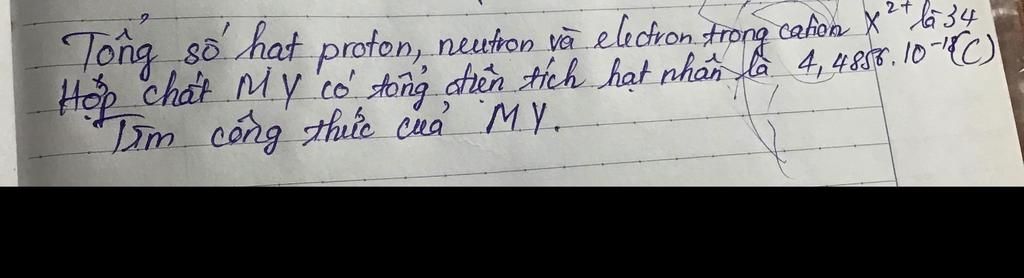 Tổng số hạt proton, neutron và electron trong cation X²⁺ là 34
Hợp chất MY có tổng điện tích hạt nhân là 4,4856.10⁻¹⁸(C)
Tìm công thức của MY.